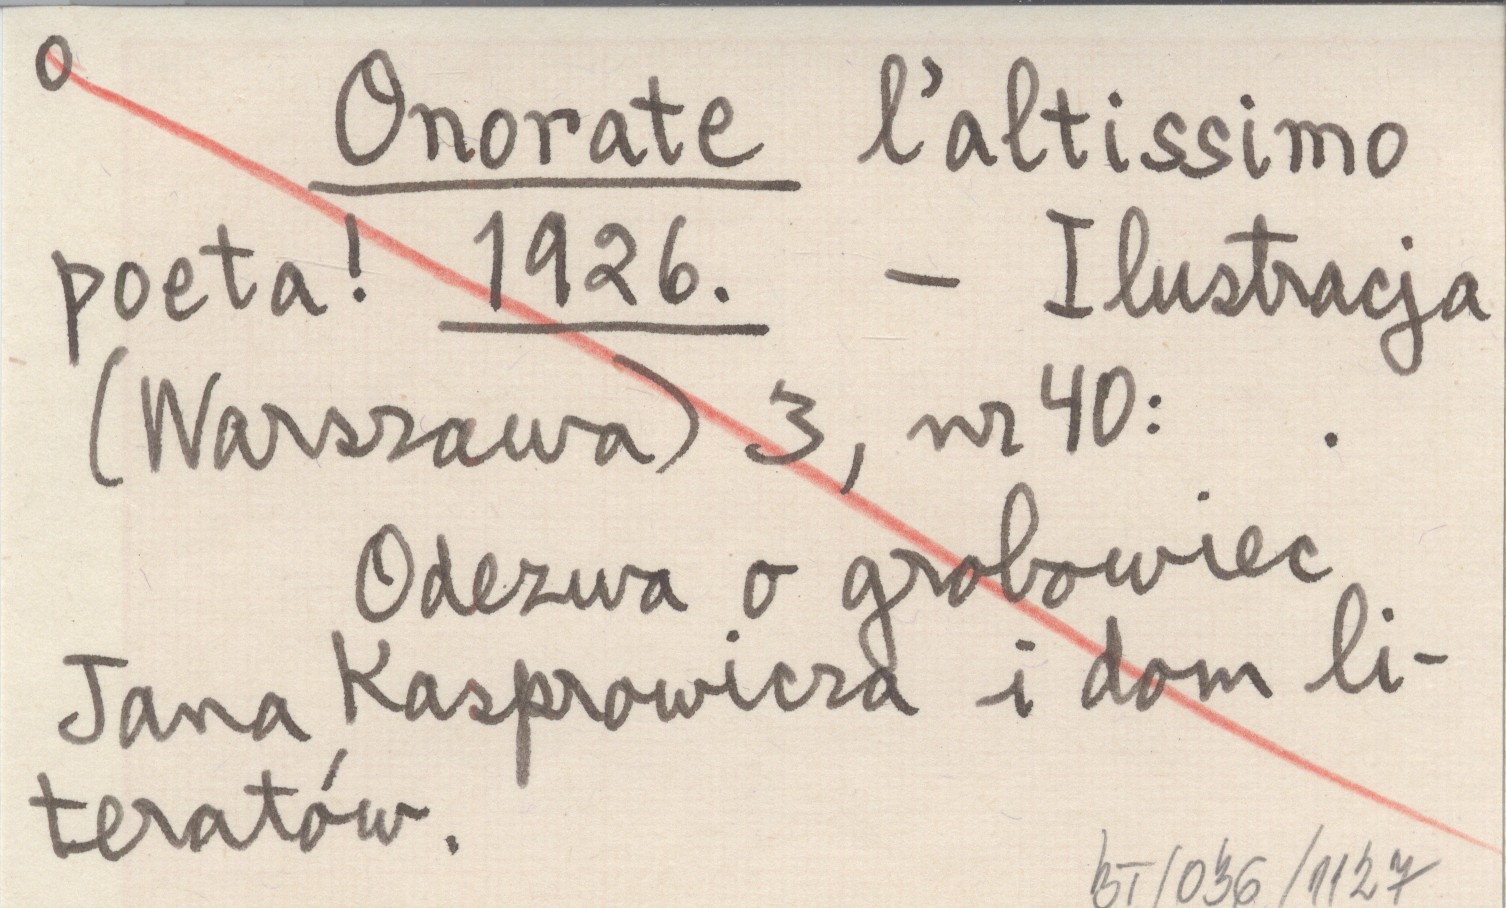 O
Onorate l'altissimo
poeta! 1926. – Ilustracja
(Warszawa) 3, nr 40: .
Odezwa o grobowiec
Jana Kasprowicza i dom li-
teratów.
BT/036/1127